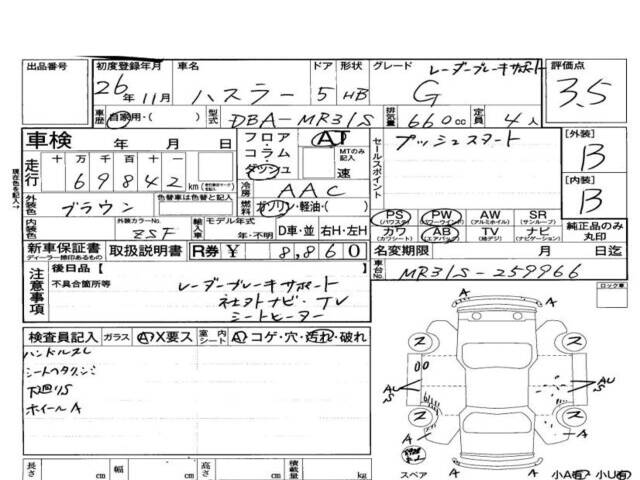 出品番号 初度登録年月 車名 ドア 形状 グレード 評価点
26年 11月 ハスラー 5 HB レーダーブレーキサポート G 3.5
車歴 自家用・( ) 型式 DBA-MR31S 排気量 660cc 定員 4人
車検 年 月 日 フロア・コラム・ダッシュ AT MTのみ記入 速 セールスポイント プッシュスタート [外装] B
走行 十 万 千 百 十 一 69842 km 冷房 AAC [内装] B
外装色 ブラウン 色替車は色替と記入 燃料 ガソリン・軽油・( )
内装色 外装カラーNo. ZSF 輸入車記入 モデル年式 年・不明 D車・並 右H・左H
PS (パワステ) PW (パワーウインド) AW (アルミホイル) SR (サンルーフ)
カワ (カワシート) AB (エアバック) TV (地デジ) ナビ (ナビゲーション) 純正品のみ丸印
新車保証書 ディーラー捺印あるもの 取扱説明書 R券 ¥ 8,860 名変期限 月 日迄
車台No. MR31S-259966
注意事項 後日品【 】
不具合箇所等 レーダーブレーキサポート
社外ナビ・TV
シートヒーター
ロック車
現在色を記入
検査員記入 ガラス A X要ス 室内 シート A・コゲ・穴・汚れ・破れ
ハンドルスレ
下廻りS
ホイールA
A A
2 2
AU S AU S
2 2
A A
A
長さ cm 幅 cm 高さ cm 積載量 kg スペア 小A有 小U有